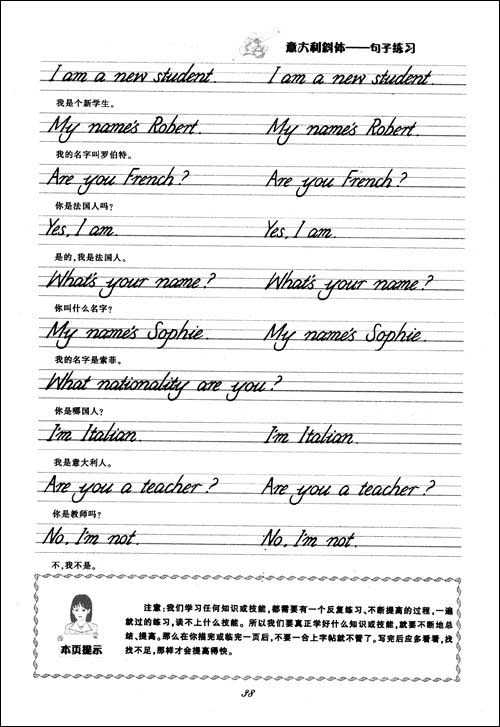 意大利斜体——句子练习
I am a new student. I am a new student.
我是个新学生。
My name's Robert. My name's Robert.
我的名字叫罗伯特。
Are you French? Are you French?
你是法国人吗?
Yes, I am. Yes, I am.
是的,我是法国人。
What's your name? What's your name?
你叫什么名字?
My name's Sophie. My name's Sophie.
我的名字是索菲。
What nationality are you?
你是哪国人?
I'm Italian. I'm Italian.
我是意大利人。
Are you a teacher? Are you a teacher?
你是教师吗?
No, I'm not. No, I'm not.
不,我不是。
注意:我们学习任何知识或技能,都需要有一个反复练习、不断提高的过程,一遍
就过的练习,谈不上什么技能。所以我们要真正学好什么知识或技能,就要不断地总
结、提高。那么在你描完或临完一页后,不要一合上字帖就不管了。写完后应多看看,找
找不足,那样才会提高得快。
本页提示
38